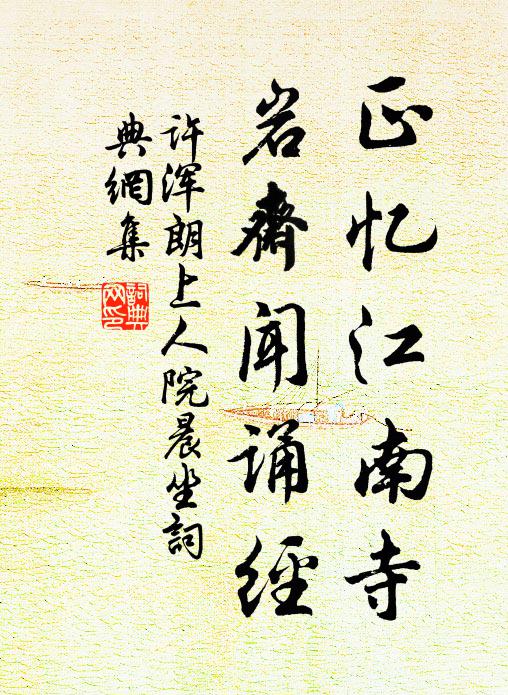 正忆江南寺
岩斋闻诵经
许浑朗上人院晨坐词
典網集
詞典網印